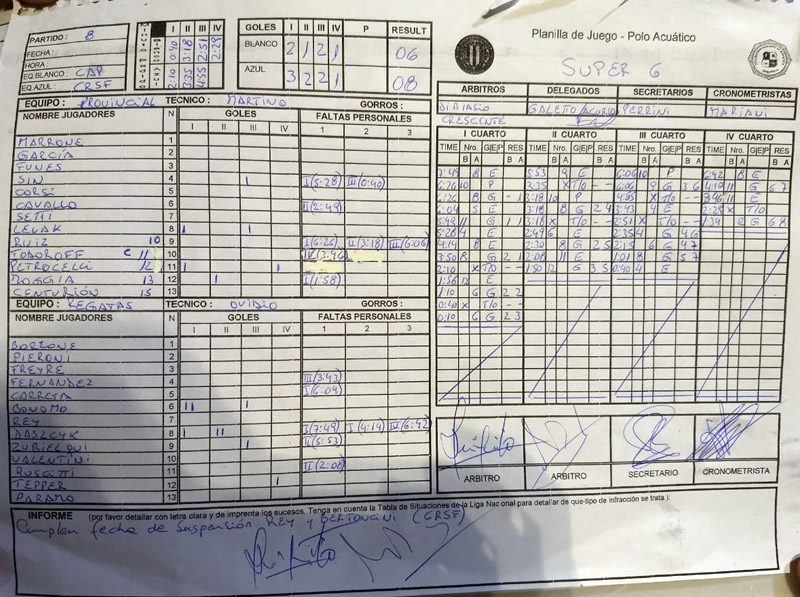 Planilla de Juego - Polo Acuático
SUPER 6
PARTIDO : 8
FECHA :
HORA :
EQ.BLANCO : CAP
EQ.AZUL CRSF
I II III IV
0:40 3:18 2:51 2:29
2:10 3:35 4:55
GOLES I II III IV P RESULT
BLANCO 2 1 2 1 06
AZUL 3 2 2 1 08
ARBITROS DELEGADOS SECRETARIOS CRONOMETRISTAS
DIBIASIO GALETO PERRINI MARIANI
CRESCENTE
EQUIPO : PROVINCIAL TECNICO : MARTINO GORROS :
NOMBRE JUGADORES N GOLES FALTAS PERSONALES
I II III IV 1 2 3
MARRONE 1
GARCÍA 2
FUNES 3
SIN 4 I I(5:28) III(0:40)
CORSI 5
CAVALLO 6 II(2:49)
SETTI 7
LEVAK 8 I I
RUIZ 10 9 I(6:26) II(3:18) III(6:06)
TODOROFF C 11 10 IV(3:46)
PETROCELLI 12 11 I I
MOGGIA 13 12 I I(1:58)
CENTURIÓN 15 13
EQUIPO : REGATAS TECNICO : OVIDIO GORROS :
NOMBRE JUGADORES N GOLES FALTAS PERSONALES
I II III IV 1 2 3
BORZONE 1
PIERONI 2
FREYRE 3
FERNANDEZ 4 III(3:43)
CARRETA 5 I(6:04)
BONOMO 6 II I
REY 7
DASZCYK 8 I I I I(7:49) I(4:14) IV(6:42)
ZUBIELQUI 9 I II(5:53)
VALENTINI 10
RUSCITTI 11 II(2:08)
TEPPER 12 I
PARAMO 13
I CUARTO II CUARTO III CUARTO IV CUARTO
TIME Nro. G|E|P RES TIME Nro. G|E|P RES TIME Nro. G|E|P RES TIME Nro. G|E|P RES
B A B A B A B A B A B A B A B A
7:49 8 E 5:53 9 E 6:06 10 P 6:42 8 E
6:26 10 P 3:35 X T/O - - 6:06 9 G 3 6 4:10 11 G 6 7
6:26 8 G - 1 3:18 10 P 4:55 X T/O - - 3:46 11 E
6:04 5 E 3:18 8 G 2 4 3:43 4 E 2:29 X T/O
5:48 11 G 1 1 2:49 6 E 2:51 X T/O - - 1:34 12 G 6 8
5:28 4 E 2:30 8 G 2 5 2:35 4 G 4 6
4:14 8 E 2:08 11 E 2:15 6 G 4 7
3:50 8 G 2 1 1:50 12 G 3 5 1:01 8 G 5 7
2:10 X T/O - - 0:40 4 E
1:58 12 E
1:10 6 G 2 2
0:40 X T/O - -
0:10 6 G 2 3
ARBITRO ARBITRO SECRETARIO CRONOMETRISTA
INFORME (por favor detallar con letra clara y de imprenta los sucesos. Tenga en cuenta la Tabla de Situaciones de la Liga Nacional para detallar de que-tipo de infracción se trata.):
Cumplen fecha de suspensión REY y BERTOGNI (CRSF)